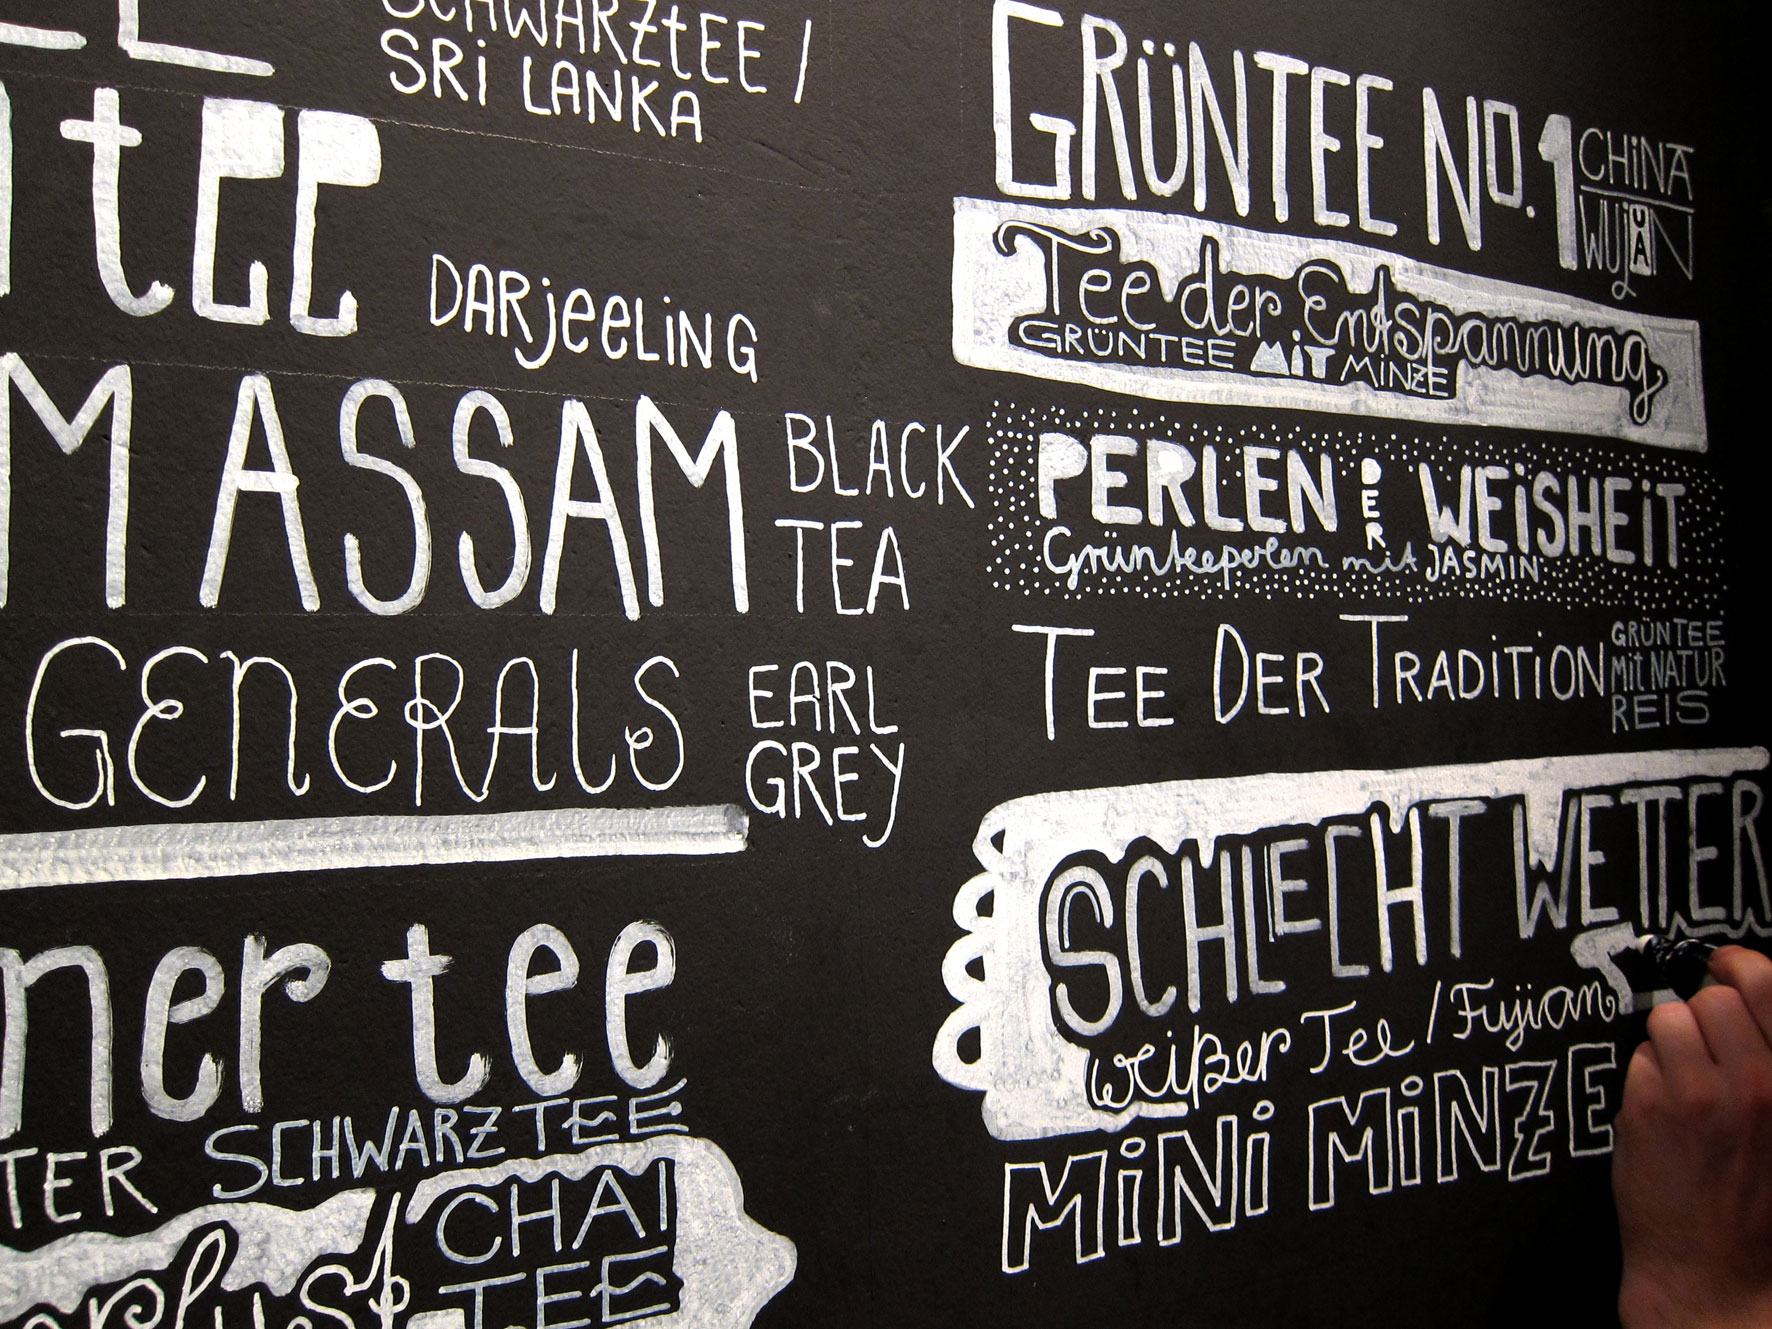 SCHWARZtEE /
SRi LANKA
tEE
DARjeeLiNG
ASSAM BLACK
TEA
GENERALS EARL
GREY
tee
SCHWARZTEE
CHAI
TEE
GRÜNTEE NO. 1 CHiNA
WUjUAN
Tee der Entspannung
GRÜNTEE MiT MiNZE
PERLEN DER WEiSHEiT
Grünteeperlen mit JASMIN
TEE DER TRADiTiON GRÜNTEE
Mit NATUR
REIS
SCHLECHT WETTER
weißer Tee / Fujian
MiNi MiNZE